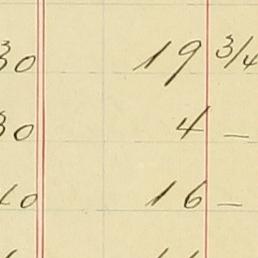 30 19 3/4
30 4 –
10 16 –